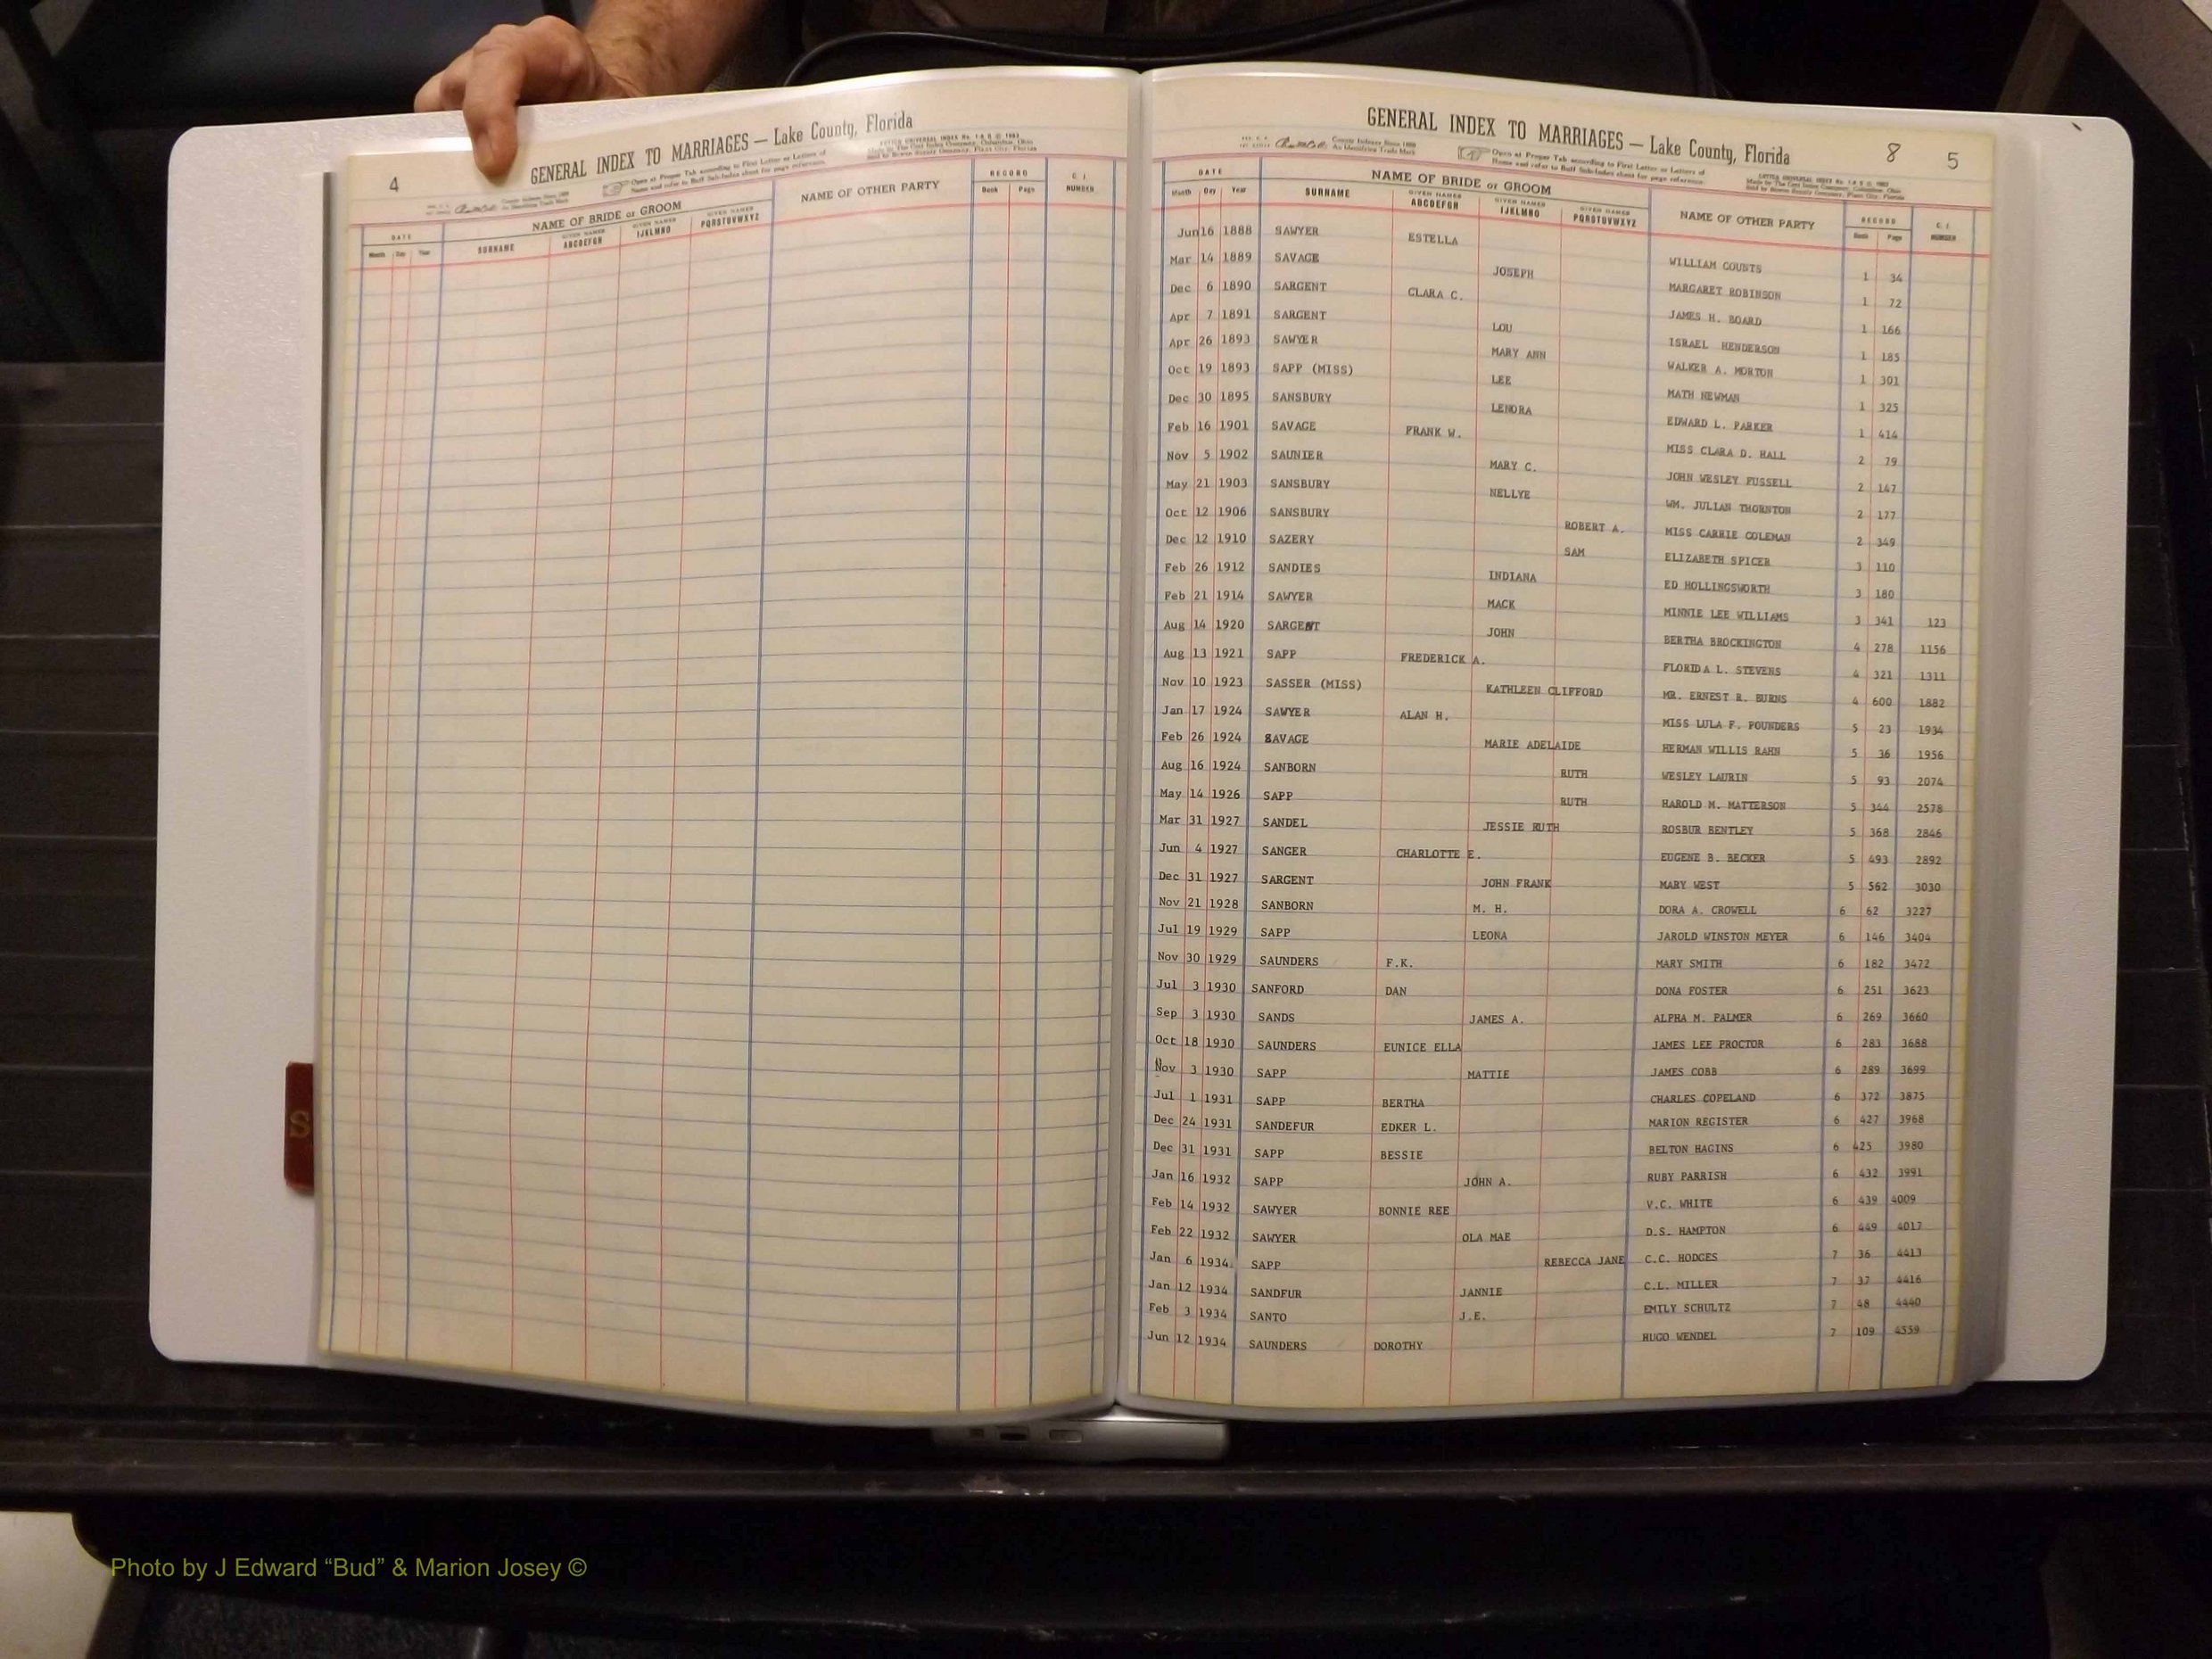 4
GENERAL INDEX TO MARRIAGES — Lake County, Florida
Open at Proper Tab according to First Letter or Letters of
Name and refer to Buff Sub-Index sheet for page reference
DATE NAME OF BRIDE or GROOM NAME OF OTHER PARTY RECORD C. I.
Month Day Year SURNAME GIVEN NAMES ABCDEFGH GIVEN NAMES IJKLMNO GIVEN NAMES PQRSTUVWXYZ Book Page NUMBER
S
GENERAL INDEX TO MARRIAGES — Lake County, Florida
8 5
County Indexes Since 1888
An Identifying Trade Mark
Open at Proper Tab according to First Letter or Letters of
Name and refer to Buff Sub-Index sheet for page reference
DATE NAME OF BRIDE or GROOM NAME OF OTHER PARTY RECORD C. I.
Month Day Year SURNAME GIVEN NAMES ABCDEFGH GIVEN NAMES IJKLMNO GIVEN NAMES PQRSTUVWXYZ Book Page NUMBER
Jun 16 1888 SAWYER ESTELLA WILLIAM COUNTS 1 34
Mar 14 1889 SAVAGE JOSEPH MARGARET ROBINSON 1 72
Dec 6 1890 SARGENT CLARA C. JAMES H. BOARD 1 166
Apr 7 1891 SARGENT LOU ISRAEL HENDERSON 1 185
Apr 26 1893 SAWYER MARY ANN WALKER A. MORTON 1 301
Oct 19 1893 SAPP (MISS) LEE MATH NEWMAN 1 325
Dec 30 1895 SANSBURY LENORA EDWARD L. PARKER 1 414
Feb 16 1901 SAVAGE FRANK W. MISS CLARA D. HALL 2 79
Nov 5 1902 SAUNIER MARY C. JOHN WESLEY FUSSELL 2 147
May 21 1903 SANSBURY NELLYE WM. JULIAN THORNTON 2 177
Oct 12 1906 SANSBURY ROBERT A. MISS CARRIE COLEMAN 2 349
Dec 12 1910 SAZERY SAM ELIZABETH SPICER 3 110
Feb 26 1912 SANDIES INDIANA ED HOLLINGSWORTH 3 180
Feb 21 1914 SAWYER MACK MINNIE LEE WILLIAMS 3 341 123
Aug 14 1920 SARGENT JOHN BERTHA BROCKINGTON 4 278 1156
Aug 13 1921 SAPP FREDERICK A. FLORIDA L. STEVENS 4 321 1311
Nov 10 1923 SASSER (MISS) KATHLEEN CLIFFORD MR. ERNEST R. BURNS 4 600 1882
Jan 17 1924 SAWYER ALAN H. MISS LULA F. POUNDERS 5 23 1934
Feb 26 1924 SAVAGE MARIE ADELAIDE HERMAN WILLIS RAHN 5 36 1956
Aug 16 1924 SANBORN RUTH WESLEY LAURIN 5 93 2074
May 14 1926 SAPP RUTH HAROLD M. MATTERSON 5 344 2578
Mar 31 1927 SANDEL JESSIE RUTH ROSBUR BENTLEY 5 368 2846
Jun 4 1927 SANGER CHARLOTTE E. EUGENE B. BECKER 5 493 2892
Dec 31 1927 SARGENT JOHN FRANK MARY WEST 5 562 3030
Nov 21 1928 SANBORN M. H. DORA A. CROWELL 6 62 3227
Jul 19 1929 SAPP LEONA JAROLD WINSTON MEYER 6 146 3404
Nov 30 1929 SAUNDERS F.K. MARY SMITH 6 182 3472
Jul 3 1930 SANFORD DAN DONA FOSTER 6 251 3623
Sep 3 1930 SANDS JAMES A. ALPHA M. PALMER 6 269 3660
Oct 18 1930 SAUNDERS EUNICE ELLA JAMES LEE PROCTOR 6 283 3688
Nov 3 1930 SAPP MATTIE JAMES COBB 6 289 3699
Jul 1 1931 SAPP BERTHA CHARLES COPELAND 6 372 3875
Dec 24 1931 SANDEFUR EDKER L. MARION REGISTER 6 427 3968
Dec 31 1931 SAPP BESSIE BELTON HAGINS 6 425 3980
Jan 16 1932 SAPP JOHN A. RUBY PARRISH 6 432 3991
Feb 14 1932 SAWYER BONNIE REE V.C. WHITE 6 439 4009
Feb 22 1932 SAWYER OLA MAE D.S. HAMPTON 6 449 4017
Jan 6 1934 SAPP REBECCA JANE C.C. HODGES 7 36 4413
Jan 12 1934 SANDFUR JANNIE C.L. MILLER 7 37 4416
Feb 3 1934 SANTO J.E. EMILY SCHULTZ 7 48 4440
Jun 12 1934 SAUNDERS DOROTHY HUGO WENDEL 7 109 4559
Photo by J Edward “Bud” & Marion Josey ©